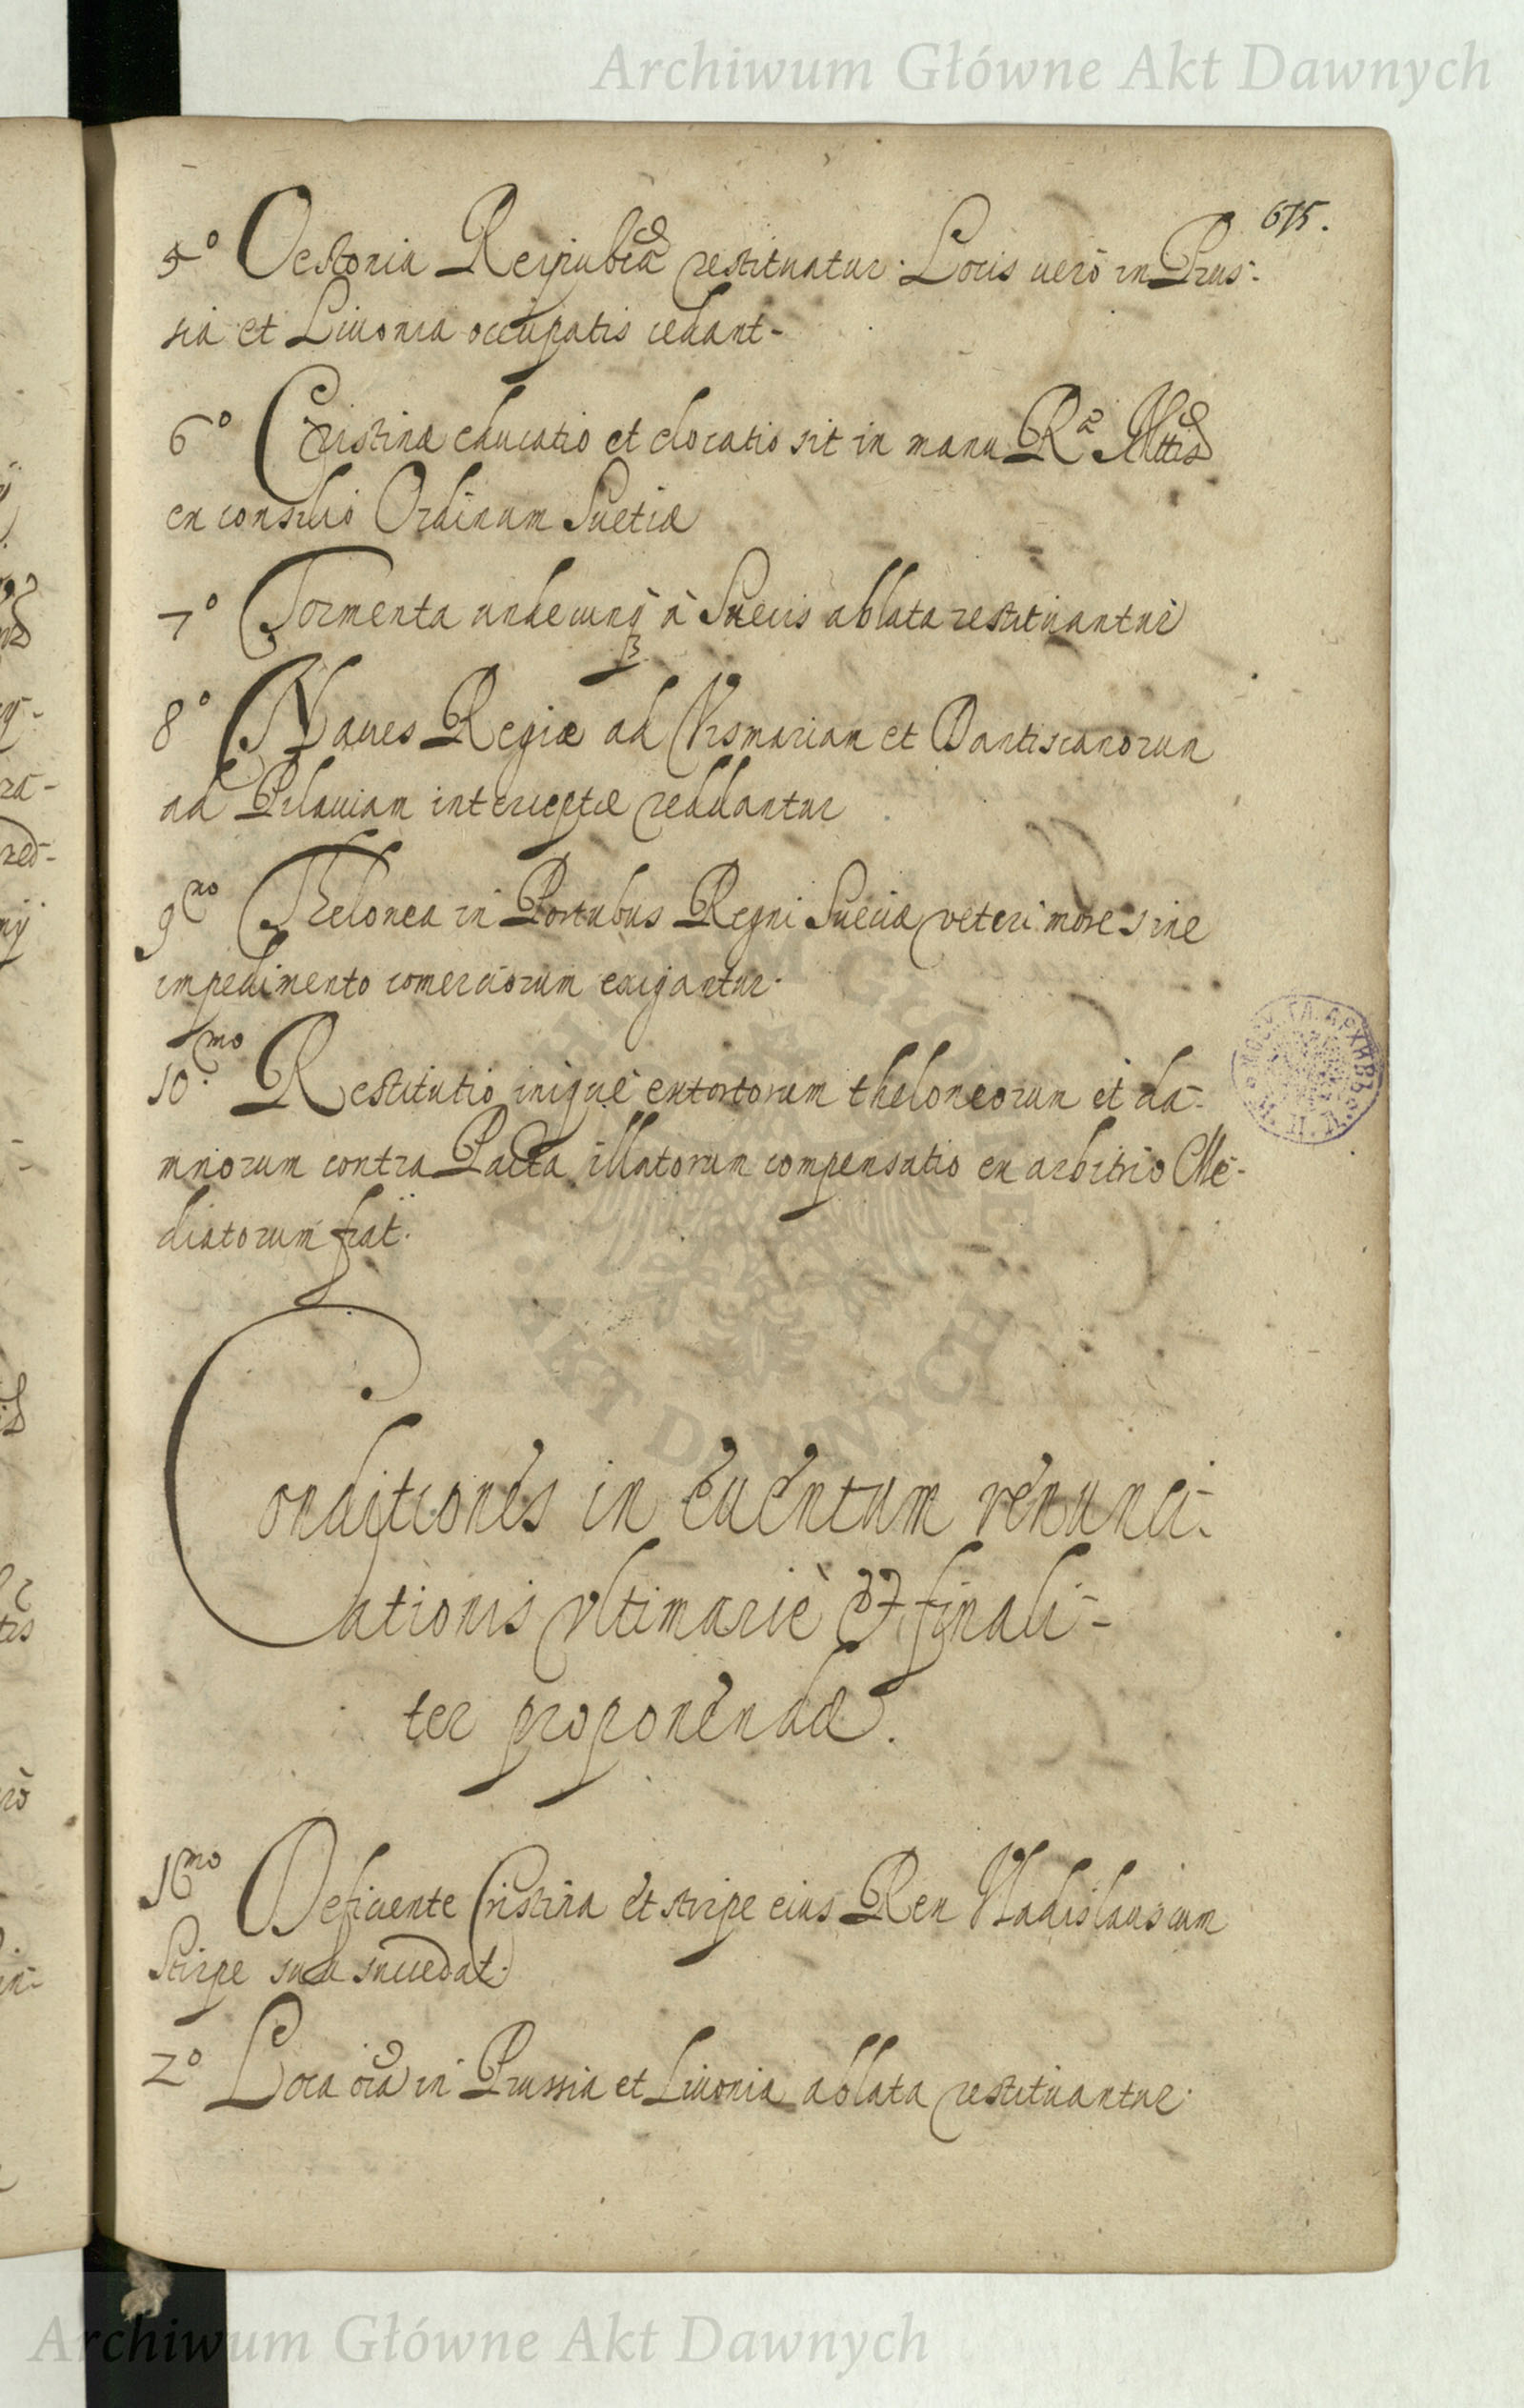 Archiwum Główne Akt Dawnych
675.
5º Oestonia Reipublcæ restituatur. Locis uerò in Prus-
sia et Liuonia occupatis cedant-
6º Cristinæ educatio et elocatio sit in manu Ræ Mttis
ex consilio Ordinum Suetiæ
7º Tormenta undecunq à Suecis ablata restituantur
8º Naues Regiæ ad Vismariam et Dantiscanorum
ad Pilauiam interceptæ reddantur
9no Thelonea in Portubus Regni Sueciæ veteri more sine
impedimento comerciorum exigantur.
10mo Restitutio iniquè extortorum theloneorum et da-
mnorum contra Pacta illatorum compensatio ex arbitrio Me-
diatorum fiat.
Conditiones in euentum renunci-
ationis vltimariè et finali-
ter proponendæ.
1mo Deficiente Cristina et stirpe eius Rex Vladislaus cum
Stirpe sua succedat.
2º Loca oia in Prussia et Liuonia ablata restituantur.
ARCHIWUM GŁÓWNE
AKT DAWNYCH
Archiwum Główne Akt Dawnych